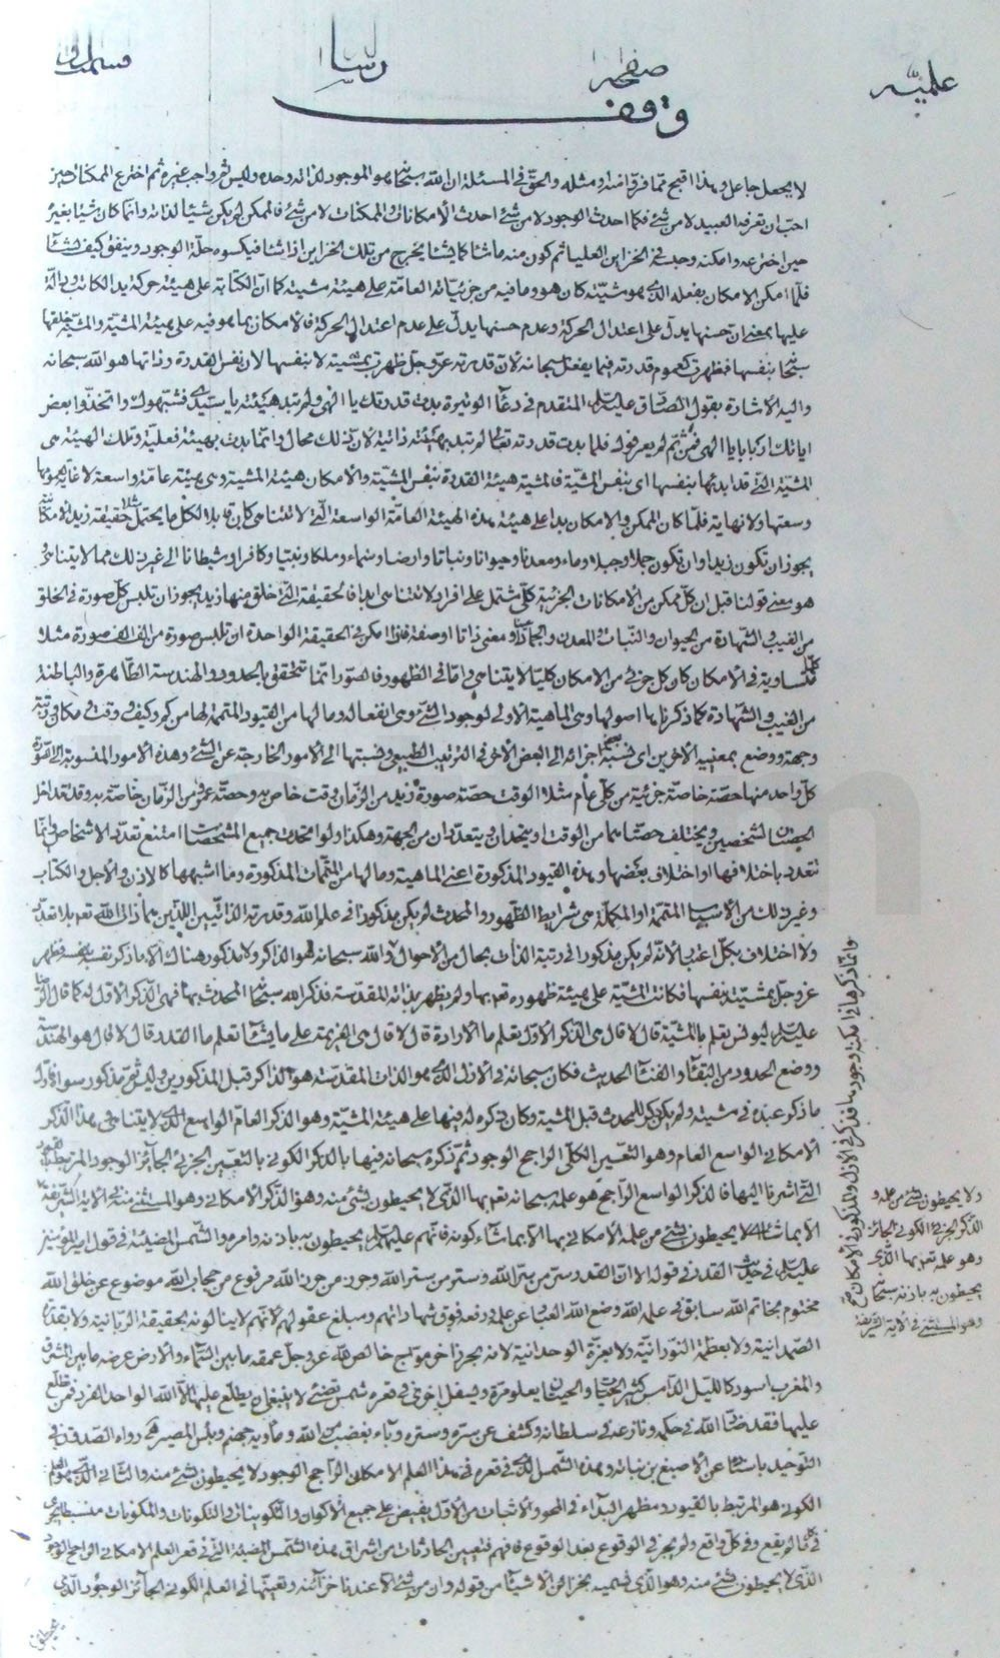 علمية
صفحه
وقف
لا يجعل جاعل وهذا اقبح مما فرّ منه ومثله والحق في المسئلة ان الله سبحانه هو الموجود لذاته وحده وليس ثم واجب غيره ثم اخترع الممكنات حين
احب ان تعرفه العبيد لا من شئ فكما احدث الوجود لا من شئ احدث الامكانات والممكنات لا من شئ فالممكن لم يكن شيئا لذاته وانما كان شيئا بغيره
حين اخترعه وامكنه وحبسه في الخزاين العليا ثم كون منه ما شاء كما يشاء يخرج من تلك الخزاين اذا شاء فيكسوه حلة الوجود وينفق كيف يشاء
فلما امكن الامكان بفعله الذي هو مشيته كان هو وما فيه من جزئياته العامة على هيئة مشيته كما ان الكتابة على هيئة حركة يد الكاتب دالة
عليها بمعنى ان حسنها يدل على اعتدال الحركة وعدم حسنها يدل على عدم اعتدال الحركة فالامكان بما هو فيه على هيئة المشية والمشية خلقها
سبحانه بنفسها فظهرت كعموم قدرته فيما يفعل سبحانه لان قدرته عز وجل ظهرت بمشيته لا بنفسها لان نفس القدرة وذاتها هو الله سبحانه
واليه الاشارة بقول الصادق عليه السلم المتقدم في دعاء الوتيرة بدت قدرتك يا الهي ولم تبد هيئته يا سيدي فشبهوك واتخذوا بعض
اياتك اربابا يا الهي فمن ثم لم يعرفوك فلما بدت قدرته تعالى لم تبد بهيئته ذاتية لان ذلك محال وانما بدت بهيئة فعلية وتلك الهيئة هي
المشية التي قد ابدئها بنفسها اي بنفس المشية فالمشية هيئة القدرة بنفس المشية والامكان هيئة المشية وهي هيئة عامة واسعة لا غاية لعمومها
وسعتها ولا نهاية فلما كان الممكن والامكان بدا على هيئة هذه الهيئة العامة الواسعة التي لا تتناهى كان قابلا لكل ما يحتمل مثلا حقيقة زيد الامكانية
يجوز ان تكون زيدا وان تكون جملا وجبلا وماء ومعدنا وحيوانا ونباتا وارضا وسماء وملكا ونبيا وكافرا وشيطانا الى غير ذلك مما لا يتناهى
هو معنى قولنا قبل ان كل ممكن من الامكانات الجزئية كلي مشتمل على افراد لا تتناهى ابدا فالحقيقة التي خلق منها زيد يجوز ان تلبس كل صورة في الخلق
من الغيب والشهادة من الحيوان والنبات والمعدن والجماد ومعنى ذاتا او صفة فاذا امكن في الحقيقة الواحدة ان تلبس صورة من الف الف صورة مثلا
متساوية في الامكان كان كل جزئي من الامكان كليا لا يتناهى واما في الظهور فالصور انما تتحقق بالحدود والهندسة الظاهرة والباطنة
من الغيب والشهادة كما ذكرنا بها اصولها وهي الماهية الاولى لوجود الشئ وهي انفعاله وما لها من القيود المتممة لها من كم وكيف ووقت ومكان ورتبة
وجهة ووضع بمعنييه الاخيرين اي نسبة بعض اجزائه الى البعض الاخر في الترتيب الطبيعي ونسبتها الى الامور الخارجة عن الشئ وهذه الامور المنسوبة الى الصورة
كل واحد منها حصة خاصة جزئية من كلي عام مثلا الوقت حصته صورة زيد من الزمان وقت خاص به وحصة عمرو من الزمان خاصة به وقد تتداخل
الحصتان لشخصين ويختلف حصتاهما من الوقت او يتحدان ويتعددان من الجهة وهكذا ولو اتحدت جميع المشخصات امتنع تعدد الاشخاص وانما
تتعدد باختلافها او اختلاف بعضها وهذه القيود المذكورة اعني الماهية وما لها من المتممات المذكورة وما اشبهها كالاذن والاجل والكتاب
وغير ذلك من الاسباب المتممة او المكملة هي شرايط الظهور والمحدث لم يكن مذكورا في علم الله وقدرته الذاتيين اللذين هما ذات الله تعالى بلا تعدد
ولا اختلاف بكل اعتبار لانه لم يكن مذكورا في رتبة الذات بحال من الاحوال والله سبحانه هو الذاكر ولا مذكور هناك الا ما ذكر نفسه بنفسه فظهر
عز وجل بمشيته بنفسها فكانت المشية على هيئة ظهوره تعالى بها ولم يظهر بذاته المقدسة فذكر الله سبحانه المحدث بها فهي الذكر الاول له كما قال الرضا
عليه السلم ليونس تعلم ما المشية قال لا قال هي الذكر الاول تعلم ما الارادة قال لا قال هي العزيمة على ما يشاء تعلم ما القدر قال لا قال هو الهندسة
ووضع الحدود من البقاء والفناء الحديث فكان سبحانه في الازل الذي هو الذات المقدسة هو الذاكر قبل المذكورين وليس ثم مذكور سواه فاول
ما ذكر عبده في مشيته ولم يكن ذكر للمحدث قبل المشية وكان ذكره له فيها على هيئة المشية وهو الذكر العام الواسع الذي لا يتناهى بهذا الذكر
الامكاني الواسع العام وهو التعين الكلي الراجح الوجود ثم ذكره سبحانه فيها بالذكر الكوني بالتعين الجزئي الجائز الوجود المرتبط بالقيود
التي اشرنا اليها فالذكر الواسع الراجح هو علمه سبحانه تعالى بها الذي لا يحيطون بشئ منه وهو الذكر الامكاني وهو المستثنى منه في الاية الشريفة
الا بما شاء اي لا يحيطون بشئ من علمه الامكاني بها الا بما شاء كونه فانهم عليهم السلم يحيطون به باذنه وامره والشمس المضيئة في قول امير المؤمنين
عليه السلم في حديث القدر في قوله الا ان القدر سر من سر الله وستر من ستر الله وحرز من حرز الله مرفوع من حجاب الله موضوع عن خلق الله
مختوم بخاتم الله سابق في علم الله وضع الله العباد عن علمه ورفعه فوق شهاداتهم ومبلغ عقولهم لانهم لا ينالونه بحقيقة الربانية ولا بقدرة
الصمدانية ولا بعظمة النورانية ولا بعزة الوحدانية لانه بحر زاخر مواج خالص لله عز وجل عمقه ما بين السماء والارض عرضه ما بين المشرق
والمغرب اسود كالليل الدامس كثير الحيات والحيتان يعلو مرة ويسفل اخرى في قعره شمس تضئ لا ينبغي ان يطلع عليها الا الله الواحد الفرد فمن تطلع
عليها فقد ضاد الله في حكمه ونازعه في سلطانه وكشف عن سره وستره وباء بغضب من الله ومأويه جهنم وبئس المصير رواه الصدوق في
التوحيد باسناده عن الاصبغ بن نباته وهذه الشمس التي في قعره هي هذا العلم الامكان الراجح الوجود لا يحيطون بشئ منه والثاني الذي هو العلم
الكوني هو المرتبط بالقيود ومظهر البداء في المحو والاثبات من الاول يفيض على جميع الاكوان والتكوينات والتكونات والمكونات منبسطا يجري
في ما لم يقع وفي كل واقع ولم يجز في الوقوع بعد الوقوع فافهم فتعين الحادثات من اشراق هذه الشمس المضيئة التي في قعر العلم الامكاني الراجح الوجود
الذي لا يحيطون بشئ منه وهو الذي نسميه بخزائن الاشياء من قوله وان من شئ الا عندنا خزائنه وتعينها في العلم الكوني الجائز الوجود الذي
يحيطون
وانما ذكرها في امكنة وجودها فذكر في الازل والمذكور في الامكان
ولا يحيطون بشئ من علمه و
الذكر الجزئي الكوني الجائز
وهو علمه تعالى بها الذي
يحيطون به باذنه سبحانه
وهو المستثنى في الاية الشريفة